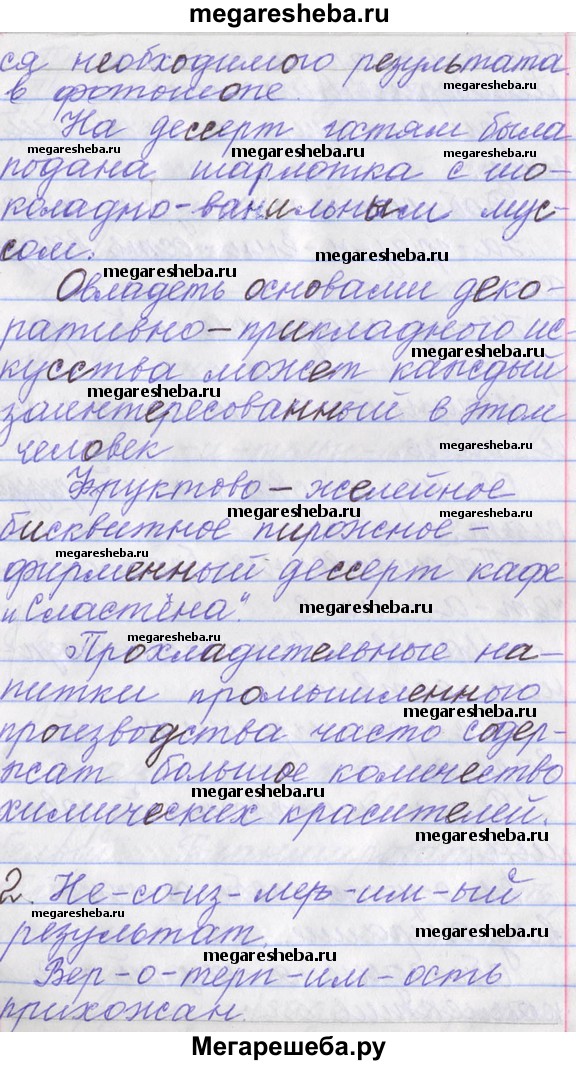 megaresheba.ru
ся необходимого результата
в фотошопе.
megaresheba.ru
На десерт гостям была
megaresheba.ru
megaresheba.ru
подана шарлотка с шо-
коладно-ванильным мус-
сом.
megaresheba.ru
megaresheba.ru
Овладеть основами деко-
ративно-прикладного ис-
megaresheba.ru
кусства может каждый
megaresheba.ru
заинтересованный в этом
человек
megaresheba.ru
Фруктово-желейное
megaresheba.ru
бисквитное пирожное -
megaresheba.ru
фирменный десерт кафе
„Сластёна".
megaresheba.ru
megaresheba.ru
Прохладительные на-
питки промышленного
megaresheba.ru
производства часто содер-
жат большое количество
megaresheba.ru
химических красителей.
megaresheba.ru
2. Не-со-из-мер-им-ый
megaresheba.ru
результат,
megaresheba.ru
Вер-о-терп-им-ость
megaresheba.ru
прихожан.
Мегарешеба.ру